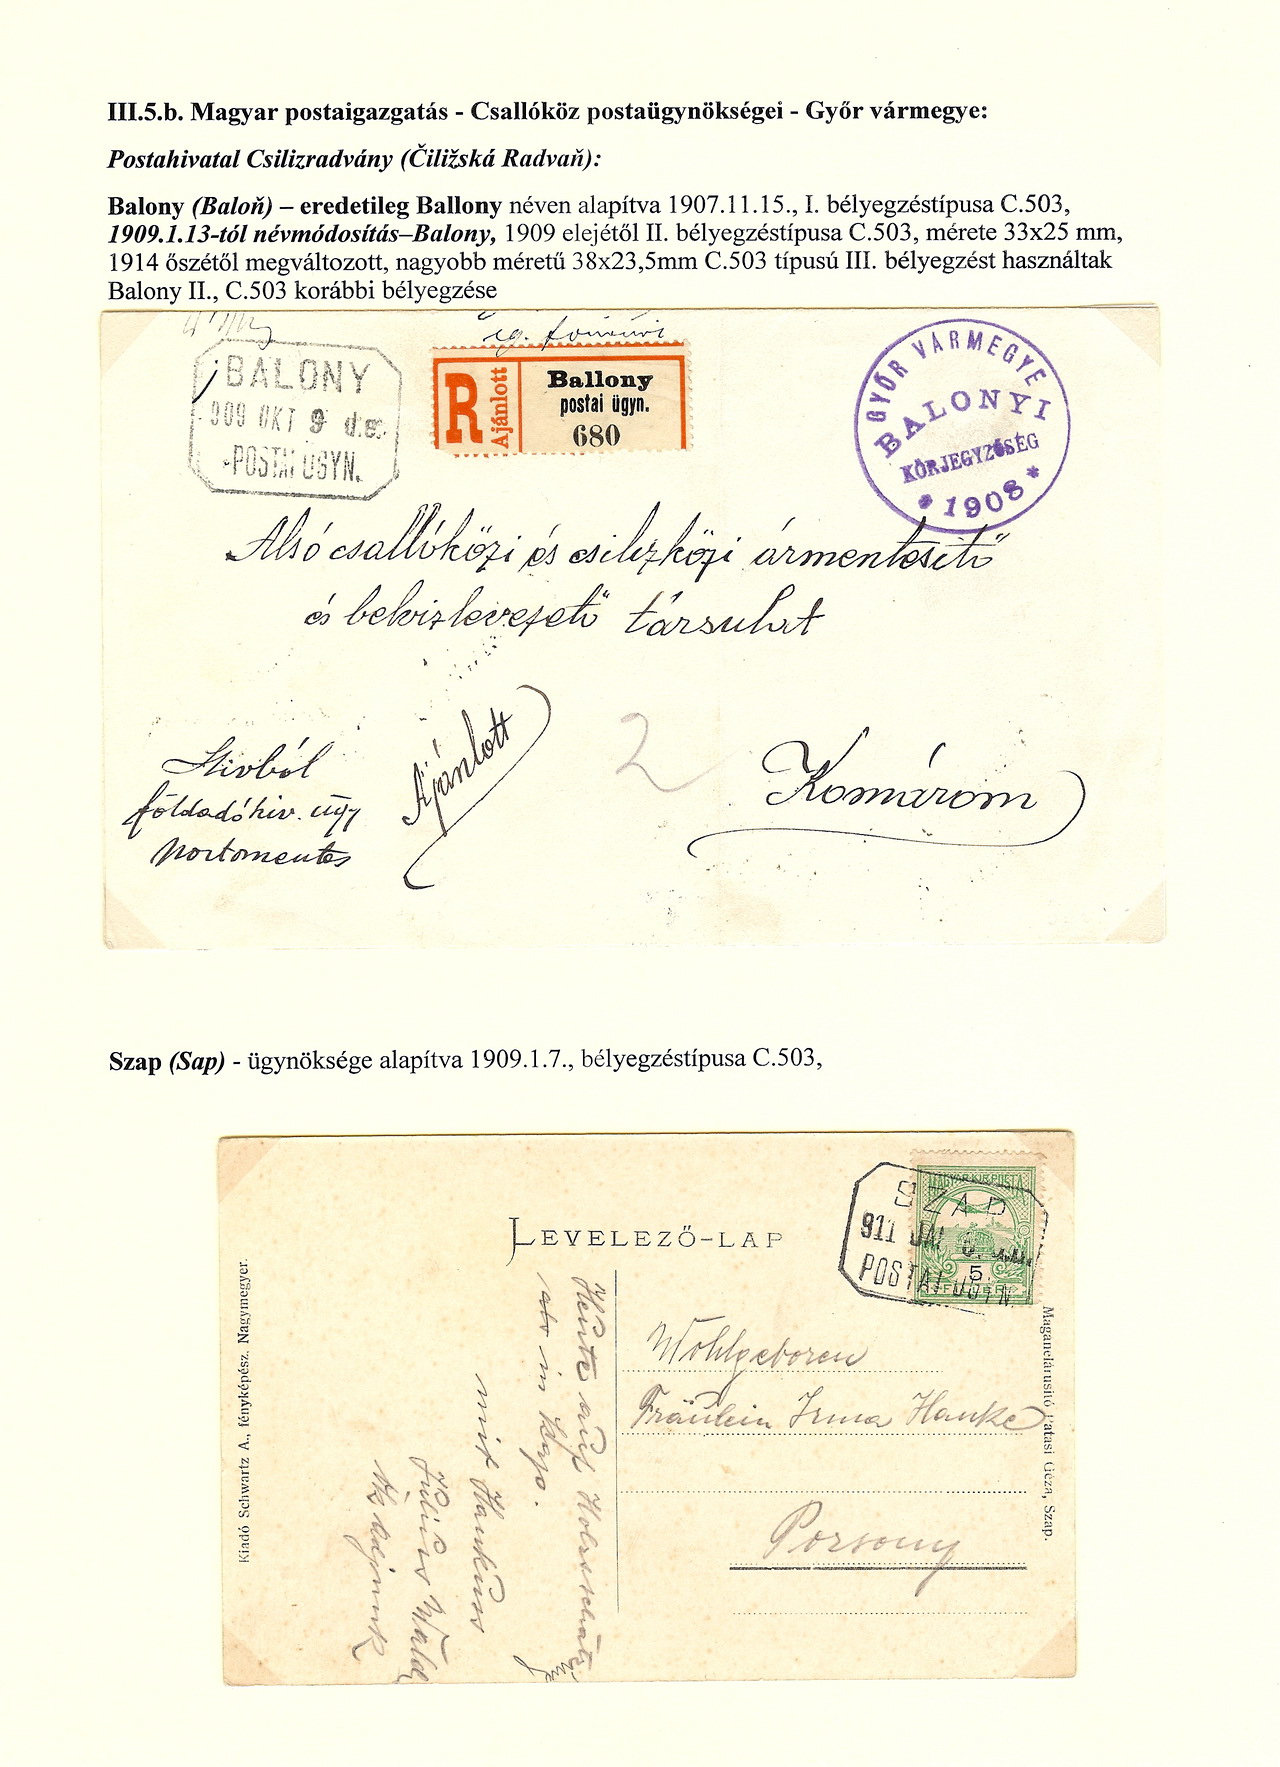 III.5.b. Magyar postaigazgatás - Csallóköz postaügynökségei - Győr vármegye:
Postahivatal Csilizradvány (Čiližská Radvaň):
Balony (Baloň) – eredetileg Ballony néven alapítva 1907.11.15., I. bélyegzéstípusa C.503,
1909.1.13-tól névmódosítás–Balony, 1909 elejétől II. bélyegzéstípusa C.503, mérete 33x25 mm,
1914 őszétől megváltozott, nagyobb méretű 38x23,5mm C.503 típusú III. bélyegzést használtak
Balony II., C.503 korábbi bélyegzése
BALONY
909 OKT 9 d.e.
POSTAI ÜGYN.
R
Ajánlott
Ballony
postai ügyn.
680
GYŐR VÁRMEGYE
BALONYI
KÖRJEGYZŐSÉG
* 1908 *
Alsó csallóközi és csilizközi ármentesítő
és belvizlevezető társulat
Hivból
földadó hiv. ügy
portomentes
Ajánlott
2
Komárom
Szap (Sap) - ügynöksége alapítva 1909.1.7., bélyegzéstípusa C.503,
LEVELEZŐ-LAP
MAGYAR KIR. POSTA
5
SZAP
911
POSTAI ÜGYN.
Wohlgeboren
Fräulein Irma Hanke
Pozsony
Kiadó Schwartz A., fényképész. Nagymegyer.
Maganelárusitó Patasi Géza, Szap.
Heute auf
in
mit
Julius